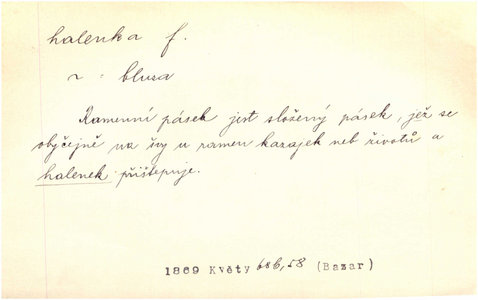 halenka f.
~ = blusa
Ramenní pásek jest složený pásek, jež se
obyčejně na švy u ramen kazajek neb životů a
halenek přištepuje.
1869 Květy 686,58 (Bazar)